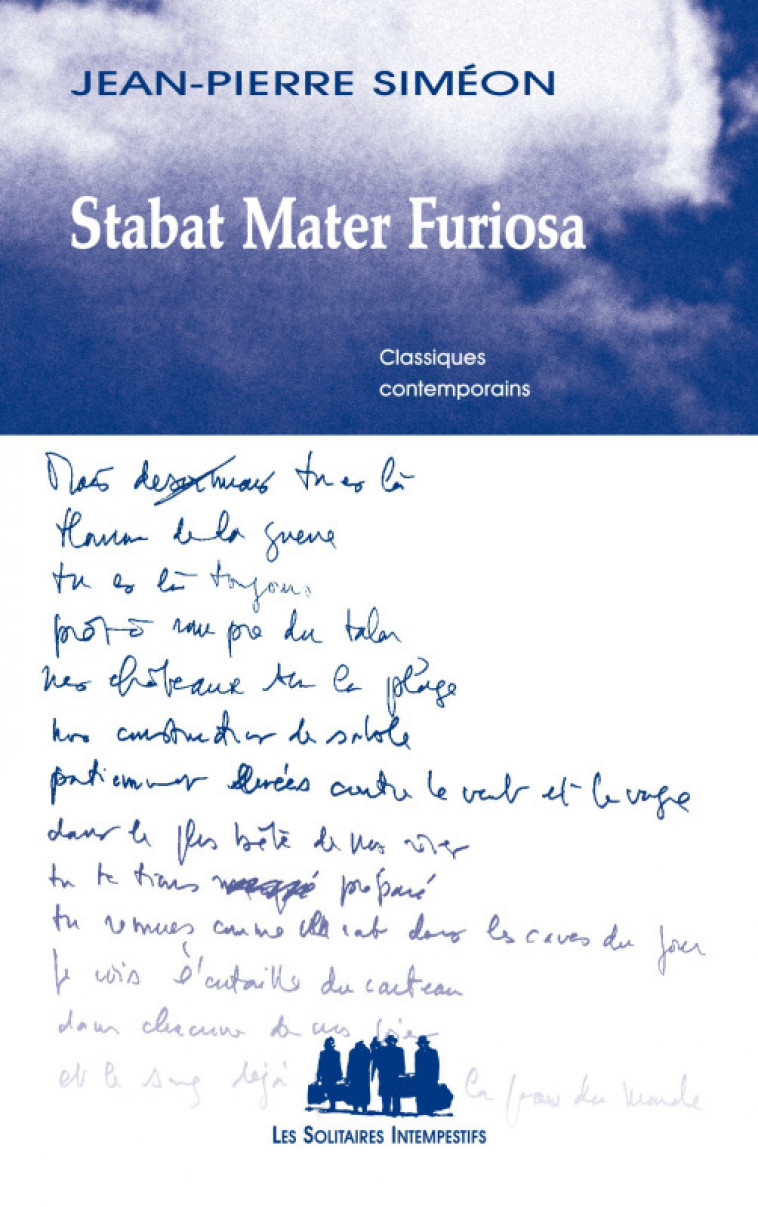 JEAN-PIERRE SIMÉON
Stabat Mater Furiosa
Classiques
contemporains
Mais desormais tu es là
Homme de la guerre
tu es là toujours
prêt à rompre du talon
nos châteaux sur la plage
nos constructions de sable
patiemment élevées contre le vent et la vague
dans le plus bête de nos rires
tu te tiens préparé
tu remues comme rat dans les caves du jour
Je vois l'entaille du couteau
dans chacune de nos
et le sang déjà la du monde
LES SOLITAIRES INTEMPESTIFS